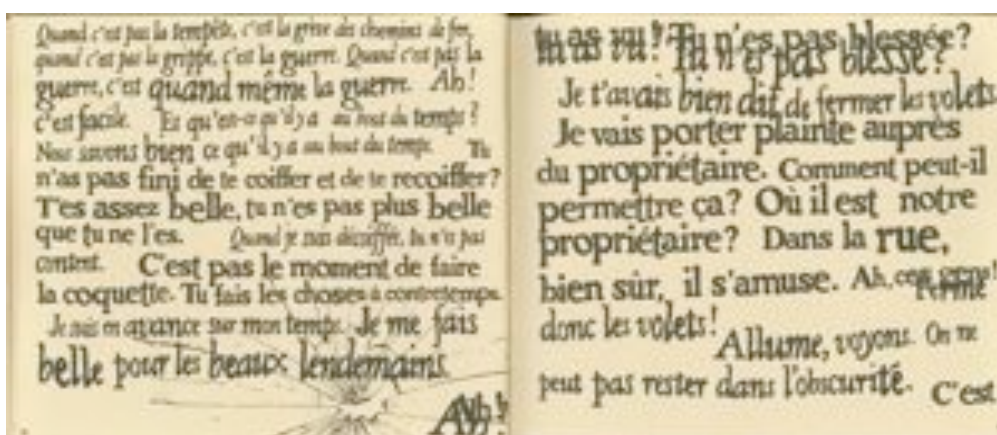 Quand c'est pas la tempête, c'est la grève des chemins de fer,
quand c'est pas la grippe, c'est la guerre. Quand c'est pas la
guerre, c'est quand même la guerre. Ah!
c'est facile. Et qu'est-ce qu'il y a au bout du temps?
Nous savons bien ce qu'il y a au bout du temps. Tu
n'as pas fini de te coiffer et de te recoiffer?
T'es assez belle, tu n'es pas plus belle
que tu ne l'es. Quand je suis décoiffée, tu n'es pas
content. C'est pas le moment de faire
la coquette. Tu fais les choses à contretemps.
Je suis en avance sur mon temps. Je me fais
belle pour les beaux lendemains.
Ah!
tu as vu? Tu n'es pas blessée?
Tu n'es pas blessé?
Je t'avais bien dit de fermer les volets.
Je vais porter plainte auprès
du propriétaire. Comment peut-il
permettre ça? Où il est notre
propriétaire? Dans la rue,
bien sûr, il s'amuse. Ah, ces gens!
Ferme
donc les volets!
Allume, voyons. On ne
peut pas rester dans l'obscurité. C'est